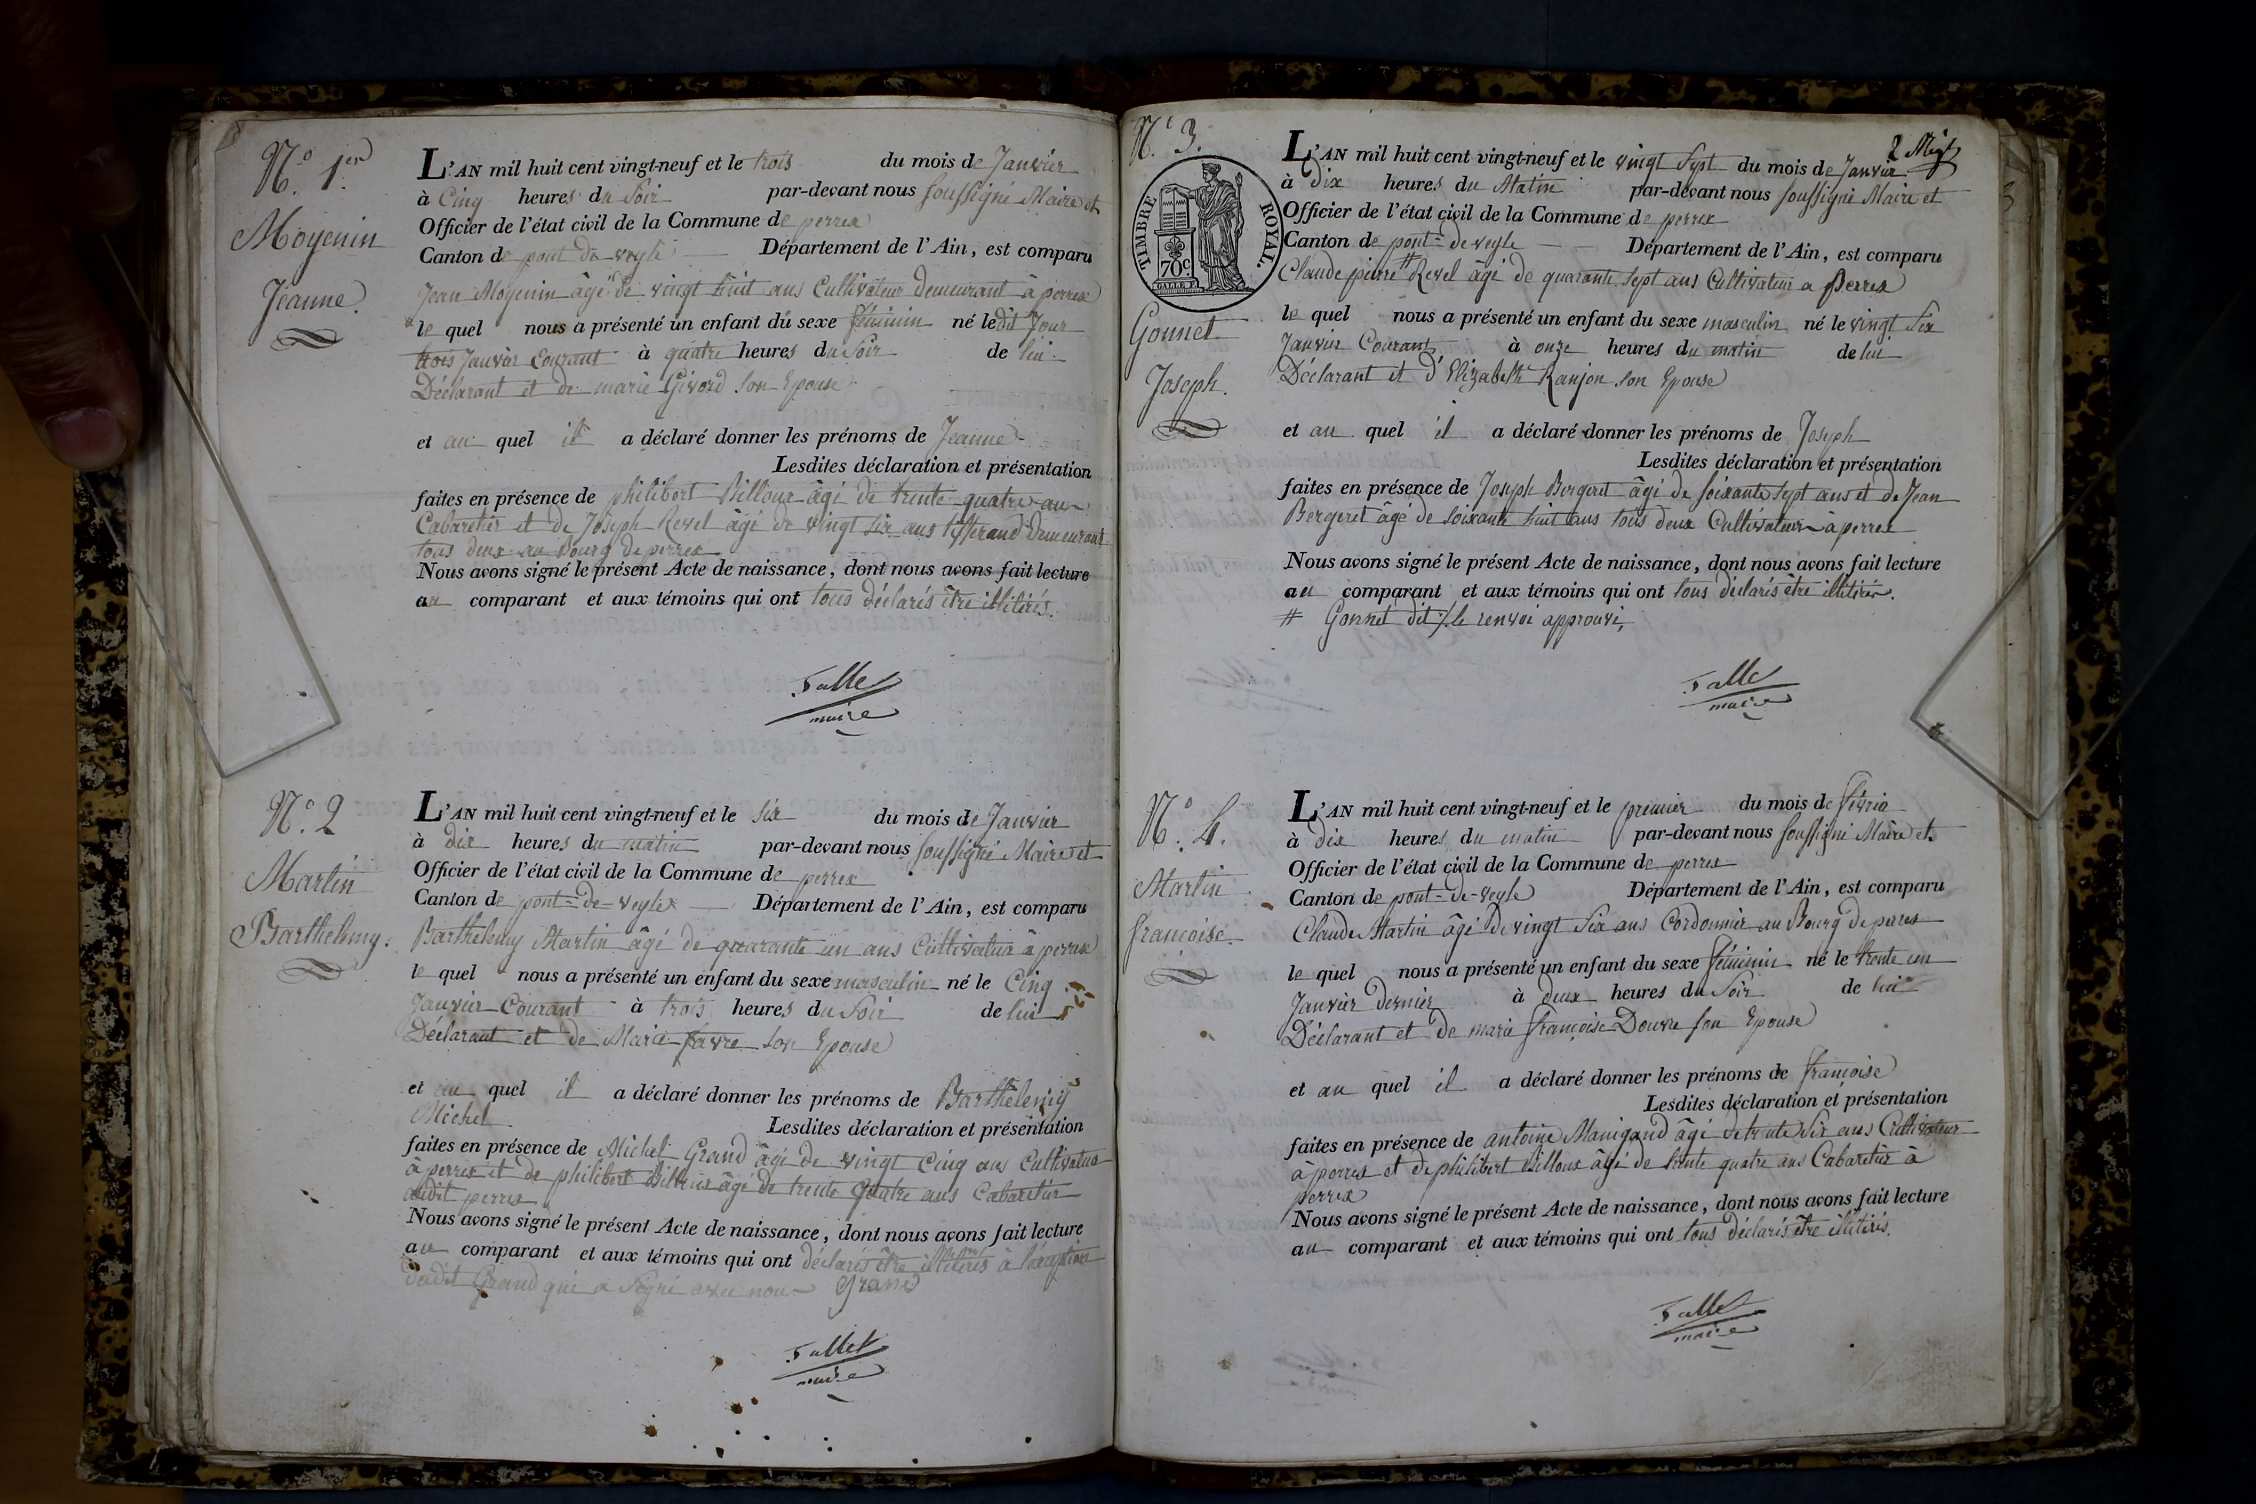 N.º 1.er
Moyenin
Jeanne.
L'AN mil huit cent vingt-neuf et le trois du mois de Janvier
à Cinq heures du Soir par-devant nous soussigné Maire et
Officier de l'état civil de la Commune de perrex
Canton de pont de veyle Département de l'Ain, est comparu
Jean Moyenin âgé de vingt huit ans Cultivateur Demeurant à perrex
le quel nous a présenté un enfant du sexe féminin né ledit Jour
trois Janvier Courant à quatre heures du Soir de lui
Déclarant et de marie Givord son Epouse
et au quel il a déclaré donner les prénoms de Jeanne
Lesdites déclaration et présentation
faites en présence de philibert Billoux âgé de trente quatre ans
Cabaretier et de Joseph Revel âgé de vingt six ans Demeurant
tous deux au Bourg de perrex
Nous avons signé le présent Acte de naissance, dont nous avons fait lecture
au comparant et aux témoins qui ont tous déclarés être illitérés.
Tallet
maire
N.º 2
Martin
Barthelemy.
L'AN mil huit cent vingt-neuf et le six du mois de Janvier
à dix heures du matin par-devant nous soussigné Maire et
Officier de l'état civil de la Commune de perrex
Canton de pont-de-veyle Département de l'Ain, est comparu
Barthelemy Martin âgé de quarante un ans Cultivateur à perrex
le quel nous a présenté un enfant du sexe masculin né le Cinq
Janvier Courant à trois heures du Soir de lui
Déclarant et de Marie favre son Epouse
et au quel il a déclaré donner les prénoms de Barthelemy
Michel
Lesdites déclaration et présentation
faites en présence de Michel Grand âgé de vingt Cinq ans Cultivateur
à perrex et de philibert Billoux âgé de trente quatre ans Cabaretier
audit perrex
Nous avons signé le présent Acte de naissance, dont nous avons fait lecture
au comparant et aux témoins qui ont déclarés être illitérés à l'éxception
dudit Grand qui a signé avec nous Grand
Tallet
maire
2 Mig
N.º 3.
TIMBRE ROYAL.
70c
Gonnet
Joseph.
L'AN mil huit cent vingt-neuf et le vingt Sept du mois de Janvier
à Dix heures du Matin par-devant nous soussigné Maire et
Officier de l'état civil de la Commune de perrex
Canton de pont-de-veyle Département de l'Ain, est comparu
Claude pierre # Revel âgé de quarante Sept ans Cultivateur a Perrex
le quel nous a présenté un enfant du sexe masculin né le vingt Six
Janvier Courant à onze heures du matin de lui
Déclarant et d'Elizabeth Ranjon son Epouse
et au quel il a déclaré donner les prénoms de Joseph
Lesdites déclaration et présentation
faites en présence de Joseph Bergeret âgé de soixante sept ans et de Jean
Bergeret âgé de soixante huit ans tous deux Cultivateurs à perrex
Nous avons signé le présent Acte de naissance, dont nous avons fait lecture
au comparant et aux témoins qui ont tous déclarés être illitérés.
# Gonnet dit /. le renvoi approuvé,
Tallet
maire
N.º 4.
Martin
françoise.
L'AN mil huit cent vingt-neuf et le premier du mois de février
à dix heures du matin par-devant nous soussigné Maire et
Officier de l'état civil de la Commune de perrex
Canton de pont-de-veyle Département de l'Ain, est comparu
Claude Martin âgé de vingt Six ans Cordonnier au Bourg de perrex
le quel nous a présenté un enfant du sexe féminin né le trente un
Janvier Dernier à deux heures du Soir de lui
Déclarant et de marie françoise Douvre son Epouse
et au quel il a déclaré donner les prénoms de françoise
Lesdites déclaration et présentation
faites en présence de antoine Manigand âgé de trente Six ans Cultivateur
à perrex et de philibert Billoux âgé de trente quatre ans Cabaretier à
perrex
Nous avons signé le présent Acte de naissance, dont nous avons fait lecture
au comparant et aux témoins qui ont tous déclarés être illitérés.
Tallet
maire